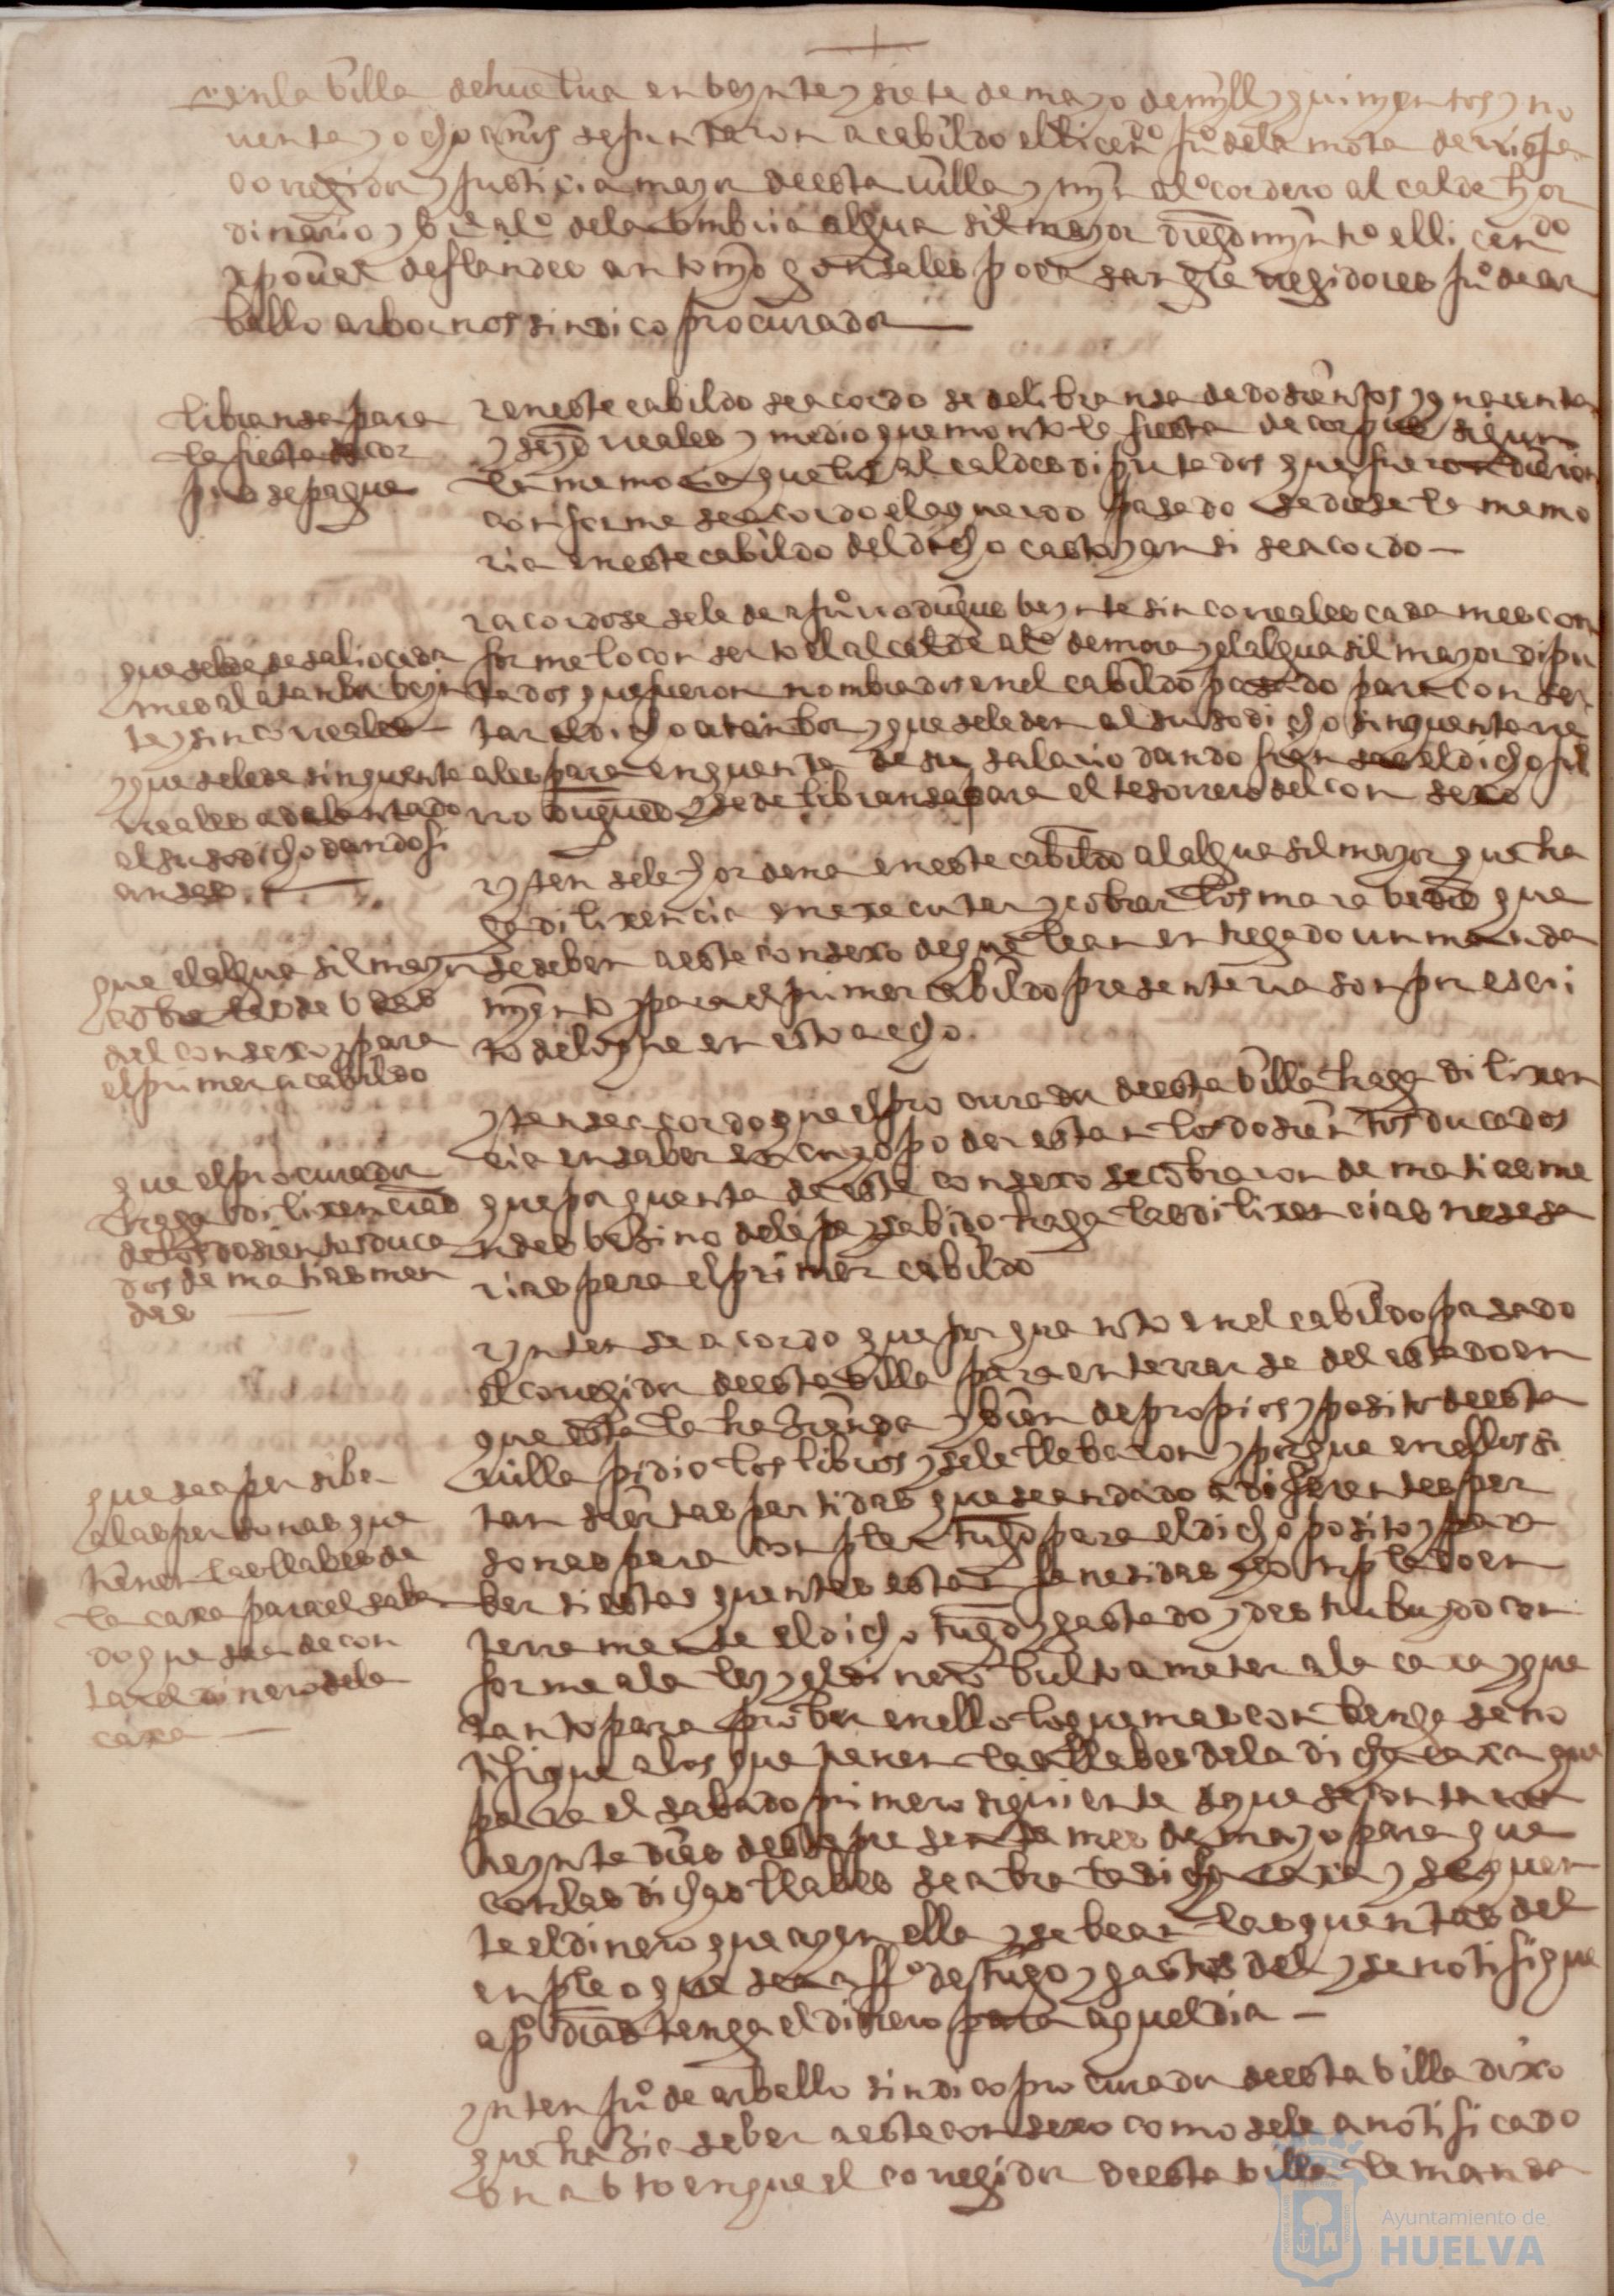 en la billa de huelua en beynte y siete de mayo de myll y quinyentos y no
uenta y ocho años se juntaron a cabildo el licendo juº de la mota de
coregidor y justicia mayor de esta uilla y myn alº cordero alcalde hor
dinario y alº de la umbria alguasil mayor diego mynº el licendo
de flandes antonyo gonsales regidores juº de ar
bello arbornos sindico procurador
libransa para
la fiesta de cor
pus se pague
en este cabildo se acordo se de libransa de dosientos y quarenta
y seys reales y medio que monto la fiesta de corpus sigun
la memoria que los alcaldes diputados que fueron dieron
conforme se acordo el aquerdo pasado se diese la memo
ria en este cabildo del dicho casto y ansi se acordo
que se le de de salio cada
mes al atanbor beyn
te y sinco reales
y que se le de sinquenta
reales adelantado
al susodicho dando fi
ansas
acordose se le de a juº rodrigues beynte sinco reales cada mes con
forme lo conserto el alcalde alº de mora y el alguasil mayor dipu
tados que fueron nombrados en el cabildo pasado para conser
tar el dicho atanbor y que se le den al susodicho sinquenta re
ales para en quenta de su salario dando fiansas el dicho juº
rodrigues y se de libransa para el tesorero del consexo
que el alguasil mayor
cobre las deudas
del consexo y para
el primer cabildo
yten se le hordena en este cabildo al alguasil mayor que ha
ga dilixencia en executar y cobrar los marabedis que
se deben a este consexo de que le an entregado un manda
myento y para el primer cabildo presente rason por escri
to de lo que en esto a echo
que el procurador
haga dilixencias
de los dosientos duca
dos de matias men
des
yten se acordo que el procurador de esta billa haga dilixen
cia en saber en cuyo poder estan los dosientos ducados
que por quenta de este consexo se cobraron de matias me
ndes besino de lepe y sabido haga las dilixencias nesesa
rias para el primer cabildo
que se aperсiba
a las personas que
tienen las llabes de
la caxa para el saba
do que se a de con
tar el dinero de la
caxa
ynten se acordo que por quanto en el cabildo pasado
el coregidor de esta billa para enterrarse del estado en
que esta la hazienda y bien de propios y posito de esta
uilla pidio los libros y se le llebaron y porque en ellos fal
tan siertas partidas que se an dado a diferentes per
sonas para conplar trigo para el dicho posito y para
ber si estas quentas estan fenesidas y conplado en
teramente el dicho trigo y gastado y destribuydo con
forme a la ley y el dinero bulto a meter a la caxa y que
tanto para prober en ello lo que mas conbenga se no
tifique a los que tienen las llabes de la dicha caxa que
para el sabado primero siguiente que se contaran
treynta dias deste presente mes de mayo para que
con las dichas llabes se abra la dicha caxa y se quen
te el dinero que ay en ella y se bean las quentas del
enpleo que se a ffº de trigo y gastos del y se notifique
a pº dias tenga el dinero para aquel dia
ynten juº de arbello sindico procurador de esta billa dixo
que hazia saber a este consexo como se le a notificado
un abto en que el coregidor de esta billa le manda
Ayuntamiento de
HUELVA